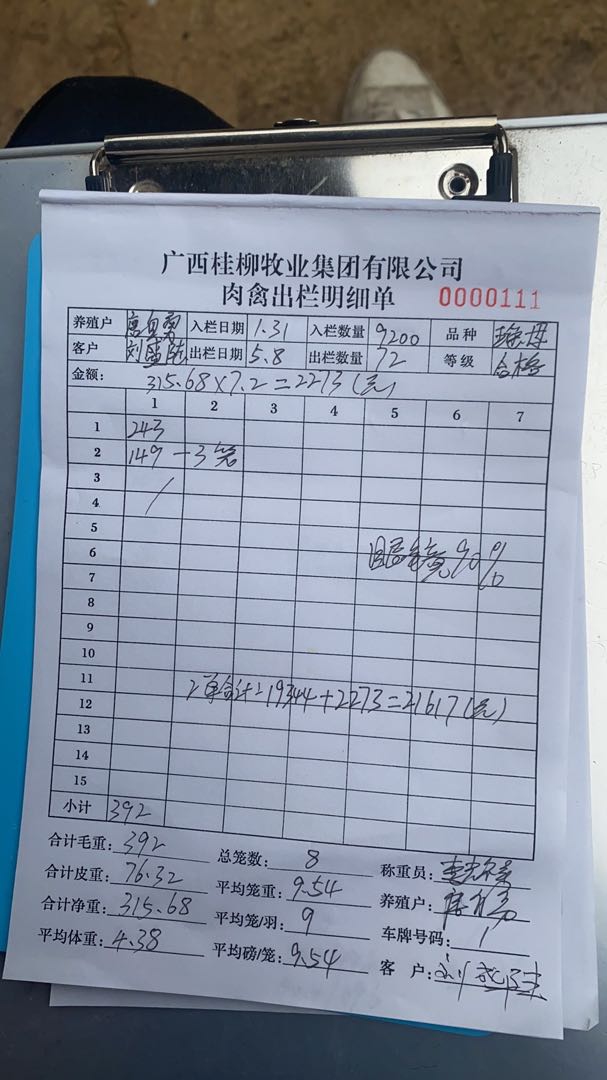 广西桂柳牧业集团有限公司
肉禽出栏明细单 0000111
养殖户 入栏日期 1.31 入栏数量 9200 品种
客户 刘 出栏日期 5.8 出栏数量 72 等级 合格
金额: 315.68×7.2=2273(元)
1 2 3 4 5 6 7
1 243
2 149 -3笼
3
4
5
6 90%
7
8
9
10
11
2单合计=19344+2273=21617(元)
12
13
14
15
小计 392
合计毛重: 392 总笼数: 8 称重员:
合计皮重: 76.32 平均笼重: 9.54 养殖户:
合计净重: 315.68 平均笼/羽: 9 车牌号码: /
平均体重: 4.38 平均磅/笼: 9.54 客 户: 刘